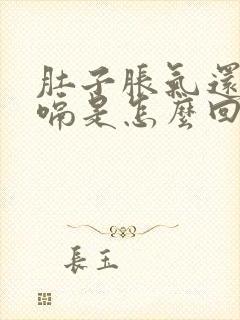 肚子脹氣還
嗝是怎麼回
長玉